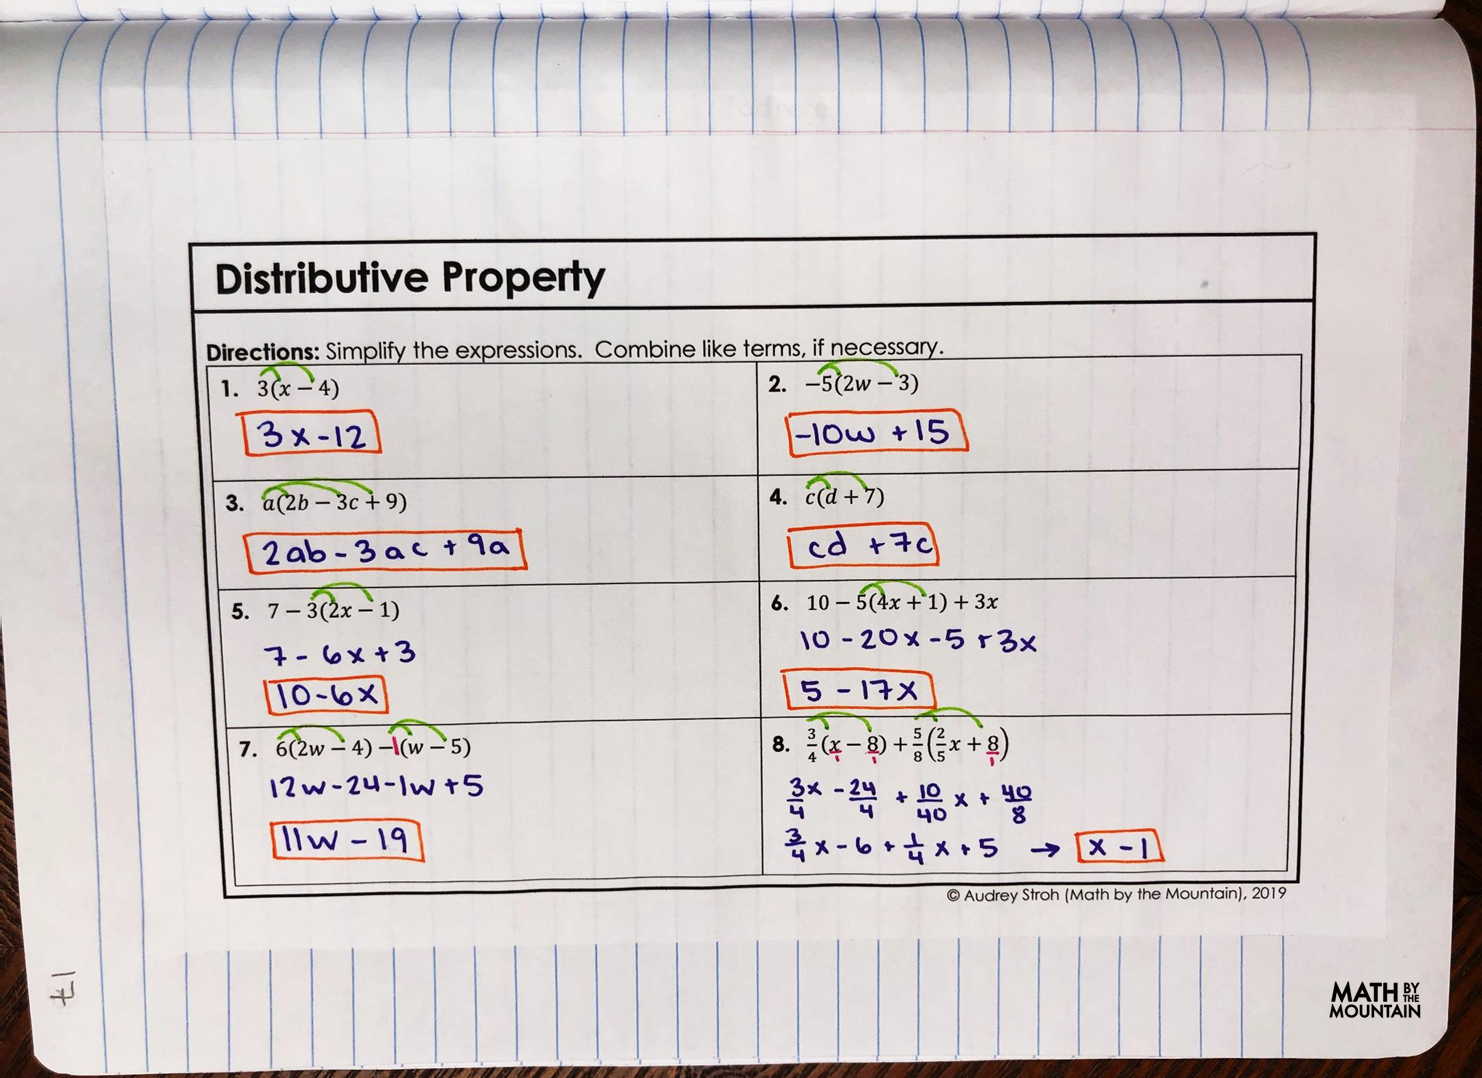 Distributive Property
Directions: Simplify the expressions. Combine like terms, if necessary.
1. 3(x − 4)
3x-12
2. −5(2w − 3)
-10w +15
3. a(2b − 3c + 9)
2ab - 3ac + 9a
4. c(d + 7)
cd +7c
5. 7 − 3(2x − 1)
7 - 6x + 3
10-6x
6. 10 − 5(4x + 1) + 3x
10 - 20x - 5 + 3x
5 - 17x
7. 6(2w − 4) −1(w − 5)
12w-24-1w+5
11w - 19
8. 3/4(x/1 − 8/1) + 5/8(2/5x + 8/1)
3x/4 - 24/4 + 10/40 x + 40/8
3/4 x - 6 + 1/4 x + 5 → x - 1
© Audrey Stroh (Math by the Mountain), 2019
17
MATH BY THE
MOUNTAIN